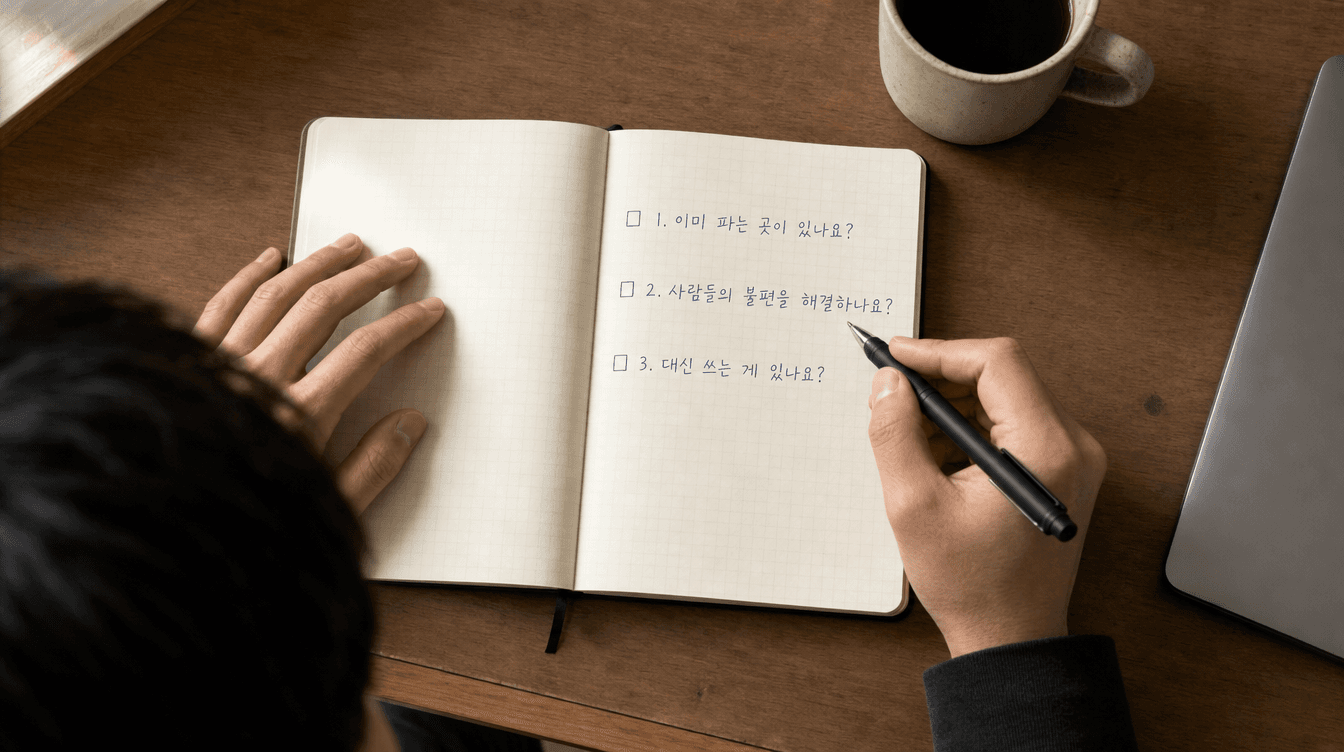 □ 1. 이미 파는 곳이 있나요?
□ 2. 사람들의 불편을 해결하나요?
□ 3. 대신 쓰는 게 있나요?